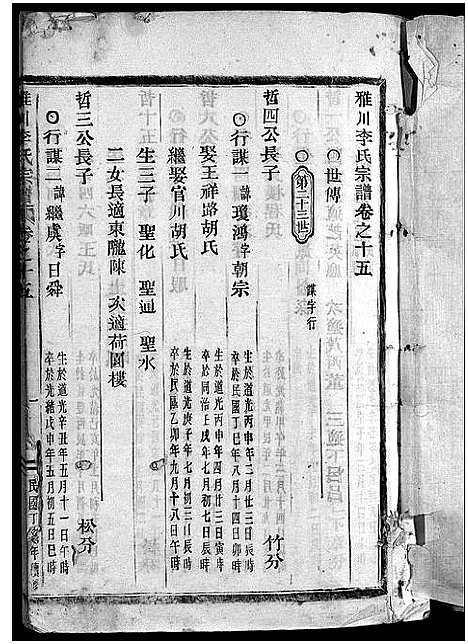 雅川李氏宗譜卷之十五
○世傳
○第二十三世 謀字行
哲四公長子 竹分
○行謀一 諱瓊鴻 字朝宗 生於道光丙申年三月廿三日辰時 卒於民國丁巳年八月十四日卯時
娶王祥路胡氏 生於道光丙申年四月廿三日寅時 卒於同治壬戌年七月初七日辰時
繼娶官川胡氏 生於道光庚子年七月初三日辰時 卒於民國乙卯年九月十八日午時
生三子 聖化 聖迪 聖水
二女長適東隴陳 次適荷園樓
哲三公長子 松分
○行謀二 諱繼虞 字日舜 生於道光辛丑年五月十一日午時 卒於光緒戊申年五月初五日巳時
雅川李氏宗譜 卷之十五 一 民國丁亥年續修